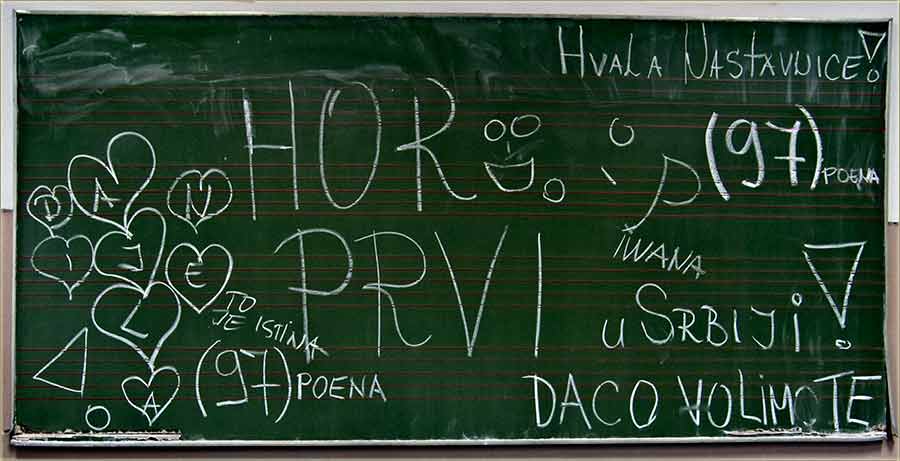 HVALA NASTAVNICE!
HOR
(97) POENA
D A N
I J E
L
A !
IWANA
PRVI
TO
JE ISTINA
u SRBIJi!
(97) POENA
DACO VOLIMO TE